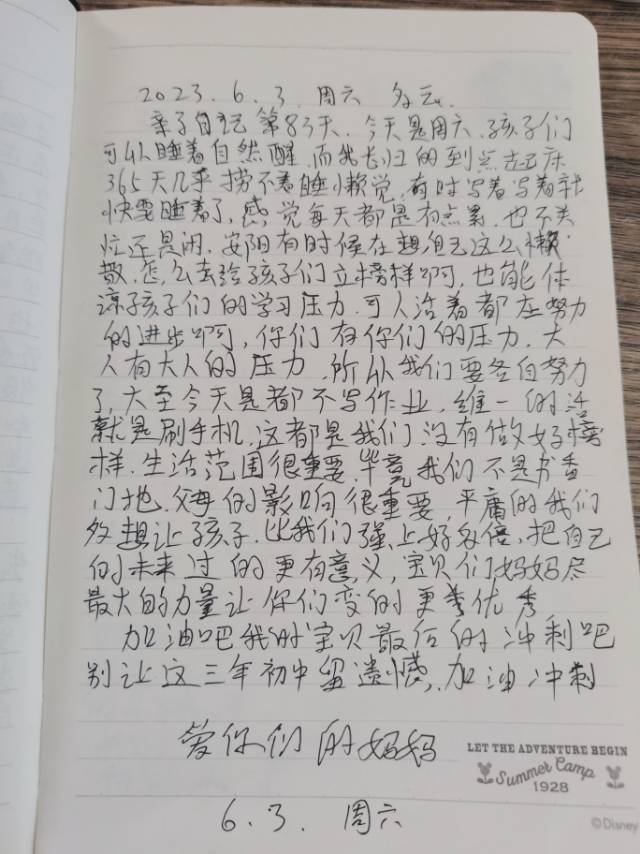 2023.6.3.周六 多云.
亲子日记 第83天.今天是周六.孩子们
可以睡着自然醒.而我
365天几乎 捞不着睡懒觉.有时写着写着就
快要睡着了,感觉每天都是有点累.也不
忙还是闲.安阳有时候在想自己这么懒
散.怎么去给孩子们立榜样啊,也能体
谅孩子们的学习压力.可人活着都在努力
的进步啊,你们有你们的压力.大
人有大人的压力.所以我们要各自努力
了,大至今天是都不写作业,维一的活
就是刷手机.这都是我们没有做好榜
样.生活范围很重要,毕竟我们不是书香
门地.父母的影响很重要,平庸的我们
多想让孩子.比我们强上好多倍.把自己
的未来过的更有意义,宝贝们妈妈尽
最大的力量让你们变的更秀优秀
加油吧我的宝贝最后的冲刺吧
别让这三年初中留遗憾,加油冲刺
爱你们的妈妈
LET THE ADVENTURE BEGIN
Summer Camp
1928
6.3.周六
©Disney